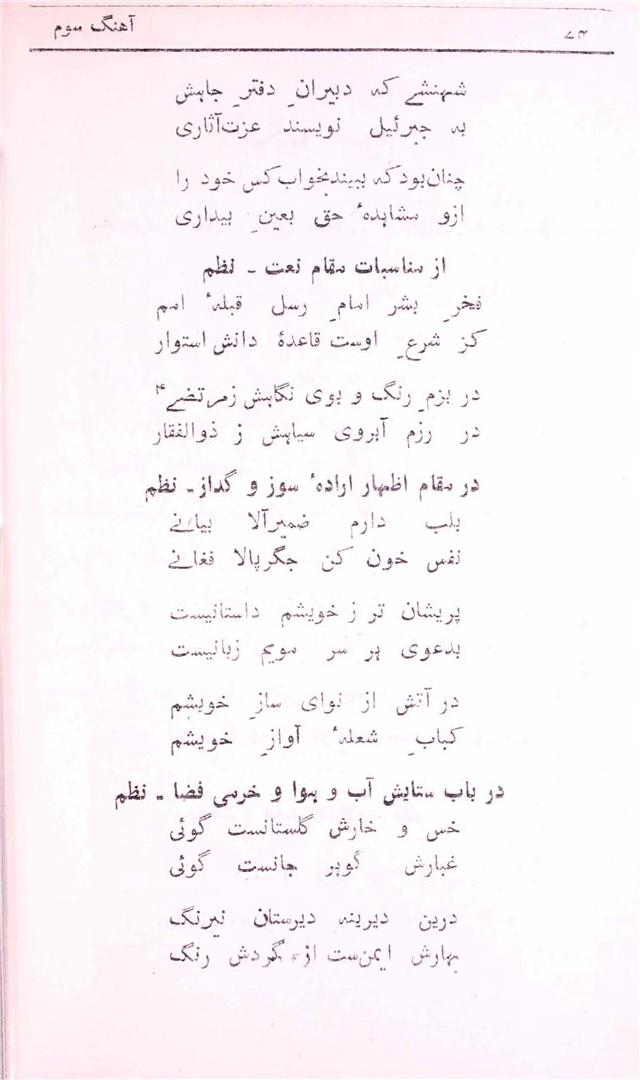 ۷۴ آهنگ سوم
شہنشہے کہ دبیرانِ دفترِ جاہش
بہ جبرئیل نویسند عزت‌آثاری
چنان‌بود کہ ببیند بخواب کس خود را
ازو مشاہدہٴ حق بعینِ بیداری
از مناسبات مقام نعت ۔ نظم
فخرِ بشر امامِ رسل قبلہٴ امم
کز شرعِ اوست قاعدۂ دانش استوار
در بزمِ رنگ و بوی نگاہش زمرتضےٰ۴
در رزم آبروی سپاہش ز ذوالفقار
در مقام اظہار ارادہٴ سوز و گداز ۔ نظم
بلب دارم ضمیرآلا بیانے
نفس خون کن جگرپالا فغانے
پریشان تر ز خویشم داستانیست
بدعوی ہر سر مویم زبانیست
در آتش از نوای سازِ خویشم
کبابِ شعلہٴ آوازِ خویشم
در باب ستایش آب و ہوا و خرمی فضا ۔ نظم
خس و خارش گلستانست گوئی
غبارش گوہر جانست گوئی
درین دیرینہ دیرستان نیرنگ
بہارش ایمن‌ست از گردش رنگ